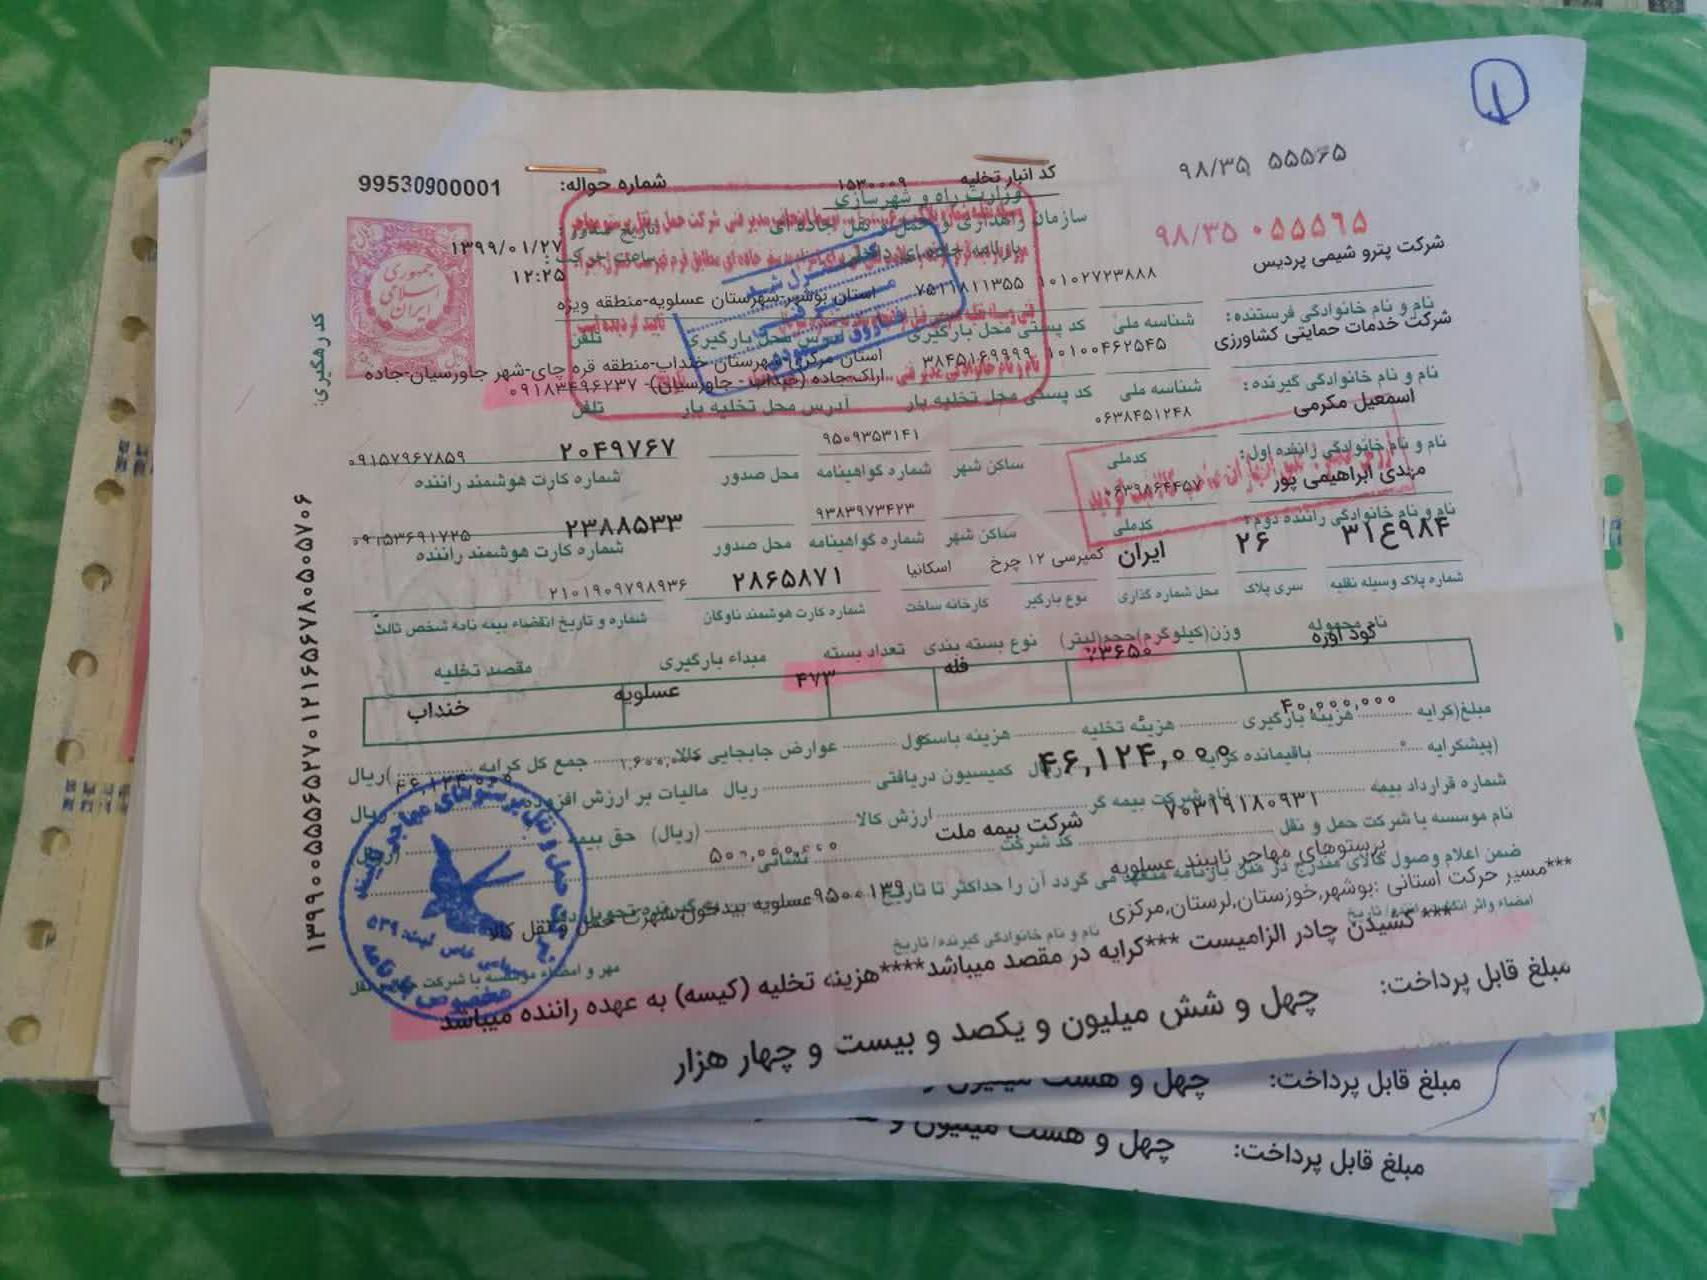 ۱
۹۸/۳۵ ۵۵۵۶۵
کد انبار تخلیه ۱۵۳۰۰۰۹
شماره حواله: 99530900001
وزارت راه و شهرسازی
سازمان راهداری و حمل و نقل جاده ای
۹۸/۳۵ ۰۵۵۵۶۵
۱۳۹۹/۰۱/۲۷
ساعت حرکت:
۱۲:۲۵
جمهوری
اسلامی
ایران
کنترل شد
شرکت پترو شیمی پردیس
۱۰۱۰۲۷۲۳۸۸۸ ۷۵۱۱۸۱۱۳۵۵ استان بوشهر-شهرستان عسلویه-منطقه ویژه
نام و نام خانوادگی فرستنده: شناسه ملی کد پستی محل بارگیری آدرس محل بارگیری تلفن
شرکت خدمات حمایتی کشاورزی ۱۰۱۰۰۴۶۲۵۴۵ ۳۸۴۵۱۶۹۹۹۹ استان مرکزی-شهرستان خنداب-منطقه قره چای-شهر جاورسیان-جاده
اراک-جاده (خنداب - جاورسیان)- ۰۹۱۸۳۴۹۶۲۳۷
نام و نام خانوادگی گیرنده: شناسه ملی کد پستی محل تخلیه بار آدرس محل تخلیه بار تلفن
اسمعیل مکرمی ۰۶۳۸۴۵۱۲۴۸ ۹۵۰۹۳۵۳۱۴۱ ۲۰۴۹۷۶۷ ۰۹۱۵۷۹۶۷۸۵۹
نام و نام خانوادگی راننده اول: کدملی ساکن شهر شماره گواهینامه محل صدور شماره کارت هوشمند راننده
مهدی ابراهیمی پور ۰۶۳۹۸۶۴۴۵۷ ۹۳۸۳۹۷۳۴۲۳ ۲۳۸۸۵۳۳ ۰۹۱۵۳۶۹۱۷۲۵
نام و نام خانوادگی راننده دوم: کدملی ساکن شهر شماره گواهینامه محل صدور شماره کارت هوشمند راننده
۳۱ع۹۸۴ ۲۶ ایران کمپرسی ۱۲ چرخ اسکانیا ۲۸۶۵۸۷۱ ۲۱۰۱۹۰۹۷۹۸۹۳۶
شماره پلاک وسیله نقلیه سری پلاک محل شماره گذاری نوع بارگیر کارخانه ساخت شماره کارت هوشمند ناوگان شماره و تاریخ انقضاء بیمه نامه شخص ثالث
نام محموله وزن(کیلوگرم)حجم(لیتر) نوع بسته بندی تعداد بسته مبداء بارگیری مقصد تخلیه
کود اوره ۲۳۶۵۰ فله ۴۷۳ عسلویه خنداب
۴۰,۰۰۰,۰۰۰
مبلغ(کرایه هزینه بارگیری هزینه تخلیه هزینه باسکول عوارض جابجایی کالا ۱,۶۰۰,۰۰۰ جمع کل کرایه )ریال
۴۶,۱۲۴,۰۰۰
(پیشکرایه ۰ باقیمانده کرایه ۴۶,۱۲۴,۰۰۰ ریال کمیسیون دریافتی ریال مالیات بر ارزش افزوده ریال
شماره قرارداد بیمه ۷۰۳۱۹۱۸۰۹۳۱ نام شرکت بیمه گر شرکت بیمه ملت ارزش کالا ۵۰۰,۰۰۰,۰۰۰ (ریال) حق بیمه (ریال)
نام موسسه یا شرکت حمل و نقل پرستوهای مهاجر نایبند عسلویه کد شرکت ۹۵۰۰۱۳۹ نشانی عسلویه بیدخون شهرک حمل و نقل کالا
ضمن اعلام وصول کالای مندرج در متن بارنامه متعهد می گردد آن را حداکثر تا تاریخ به گیرنده تحویل دهد
***مسیر حرکت استانی :بوشهر,خوزستان,لرستان,مرکزی
نام و نام خانوادگی گیرنده/ تاریخ
مهر و امضاء موسسه یا شرکت حمل و نقل
*** کشیدن چادر الزامیست ***کرایه در مقصد میباشد****هزینه تخلیه (کیسه) به عهده راننده میباشد
مبلغ قابل پرداخت: چهل و شش میلیون و یکصد و بیست و چهار هزار
مبلغ قابل پرداخت: چهل و هشت میلیون و
مبلغ قابل پرداخت: چهل و هشت میلیون و
کد رهگیری:
۱۳۹۹۰۰۵۵۵۶۵۲۷۰۱۲۱۶۵۶۷۸۰۵۰۰۵۷۰۶
حمل و نقل پرستوهای مهاجر نایبند
مخصوص بارنامه